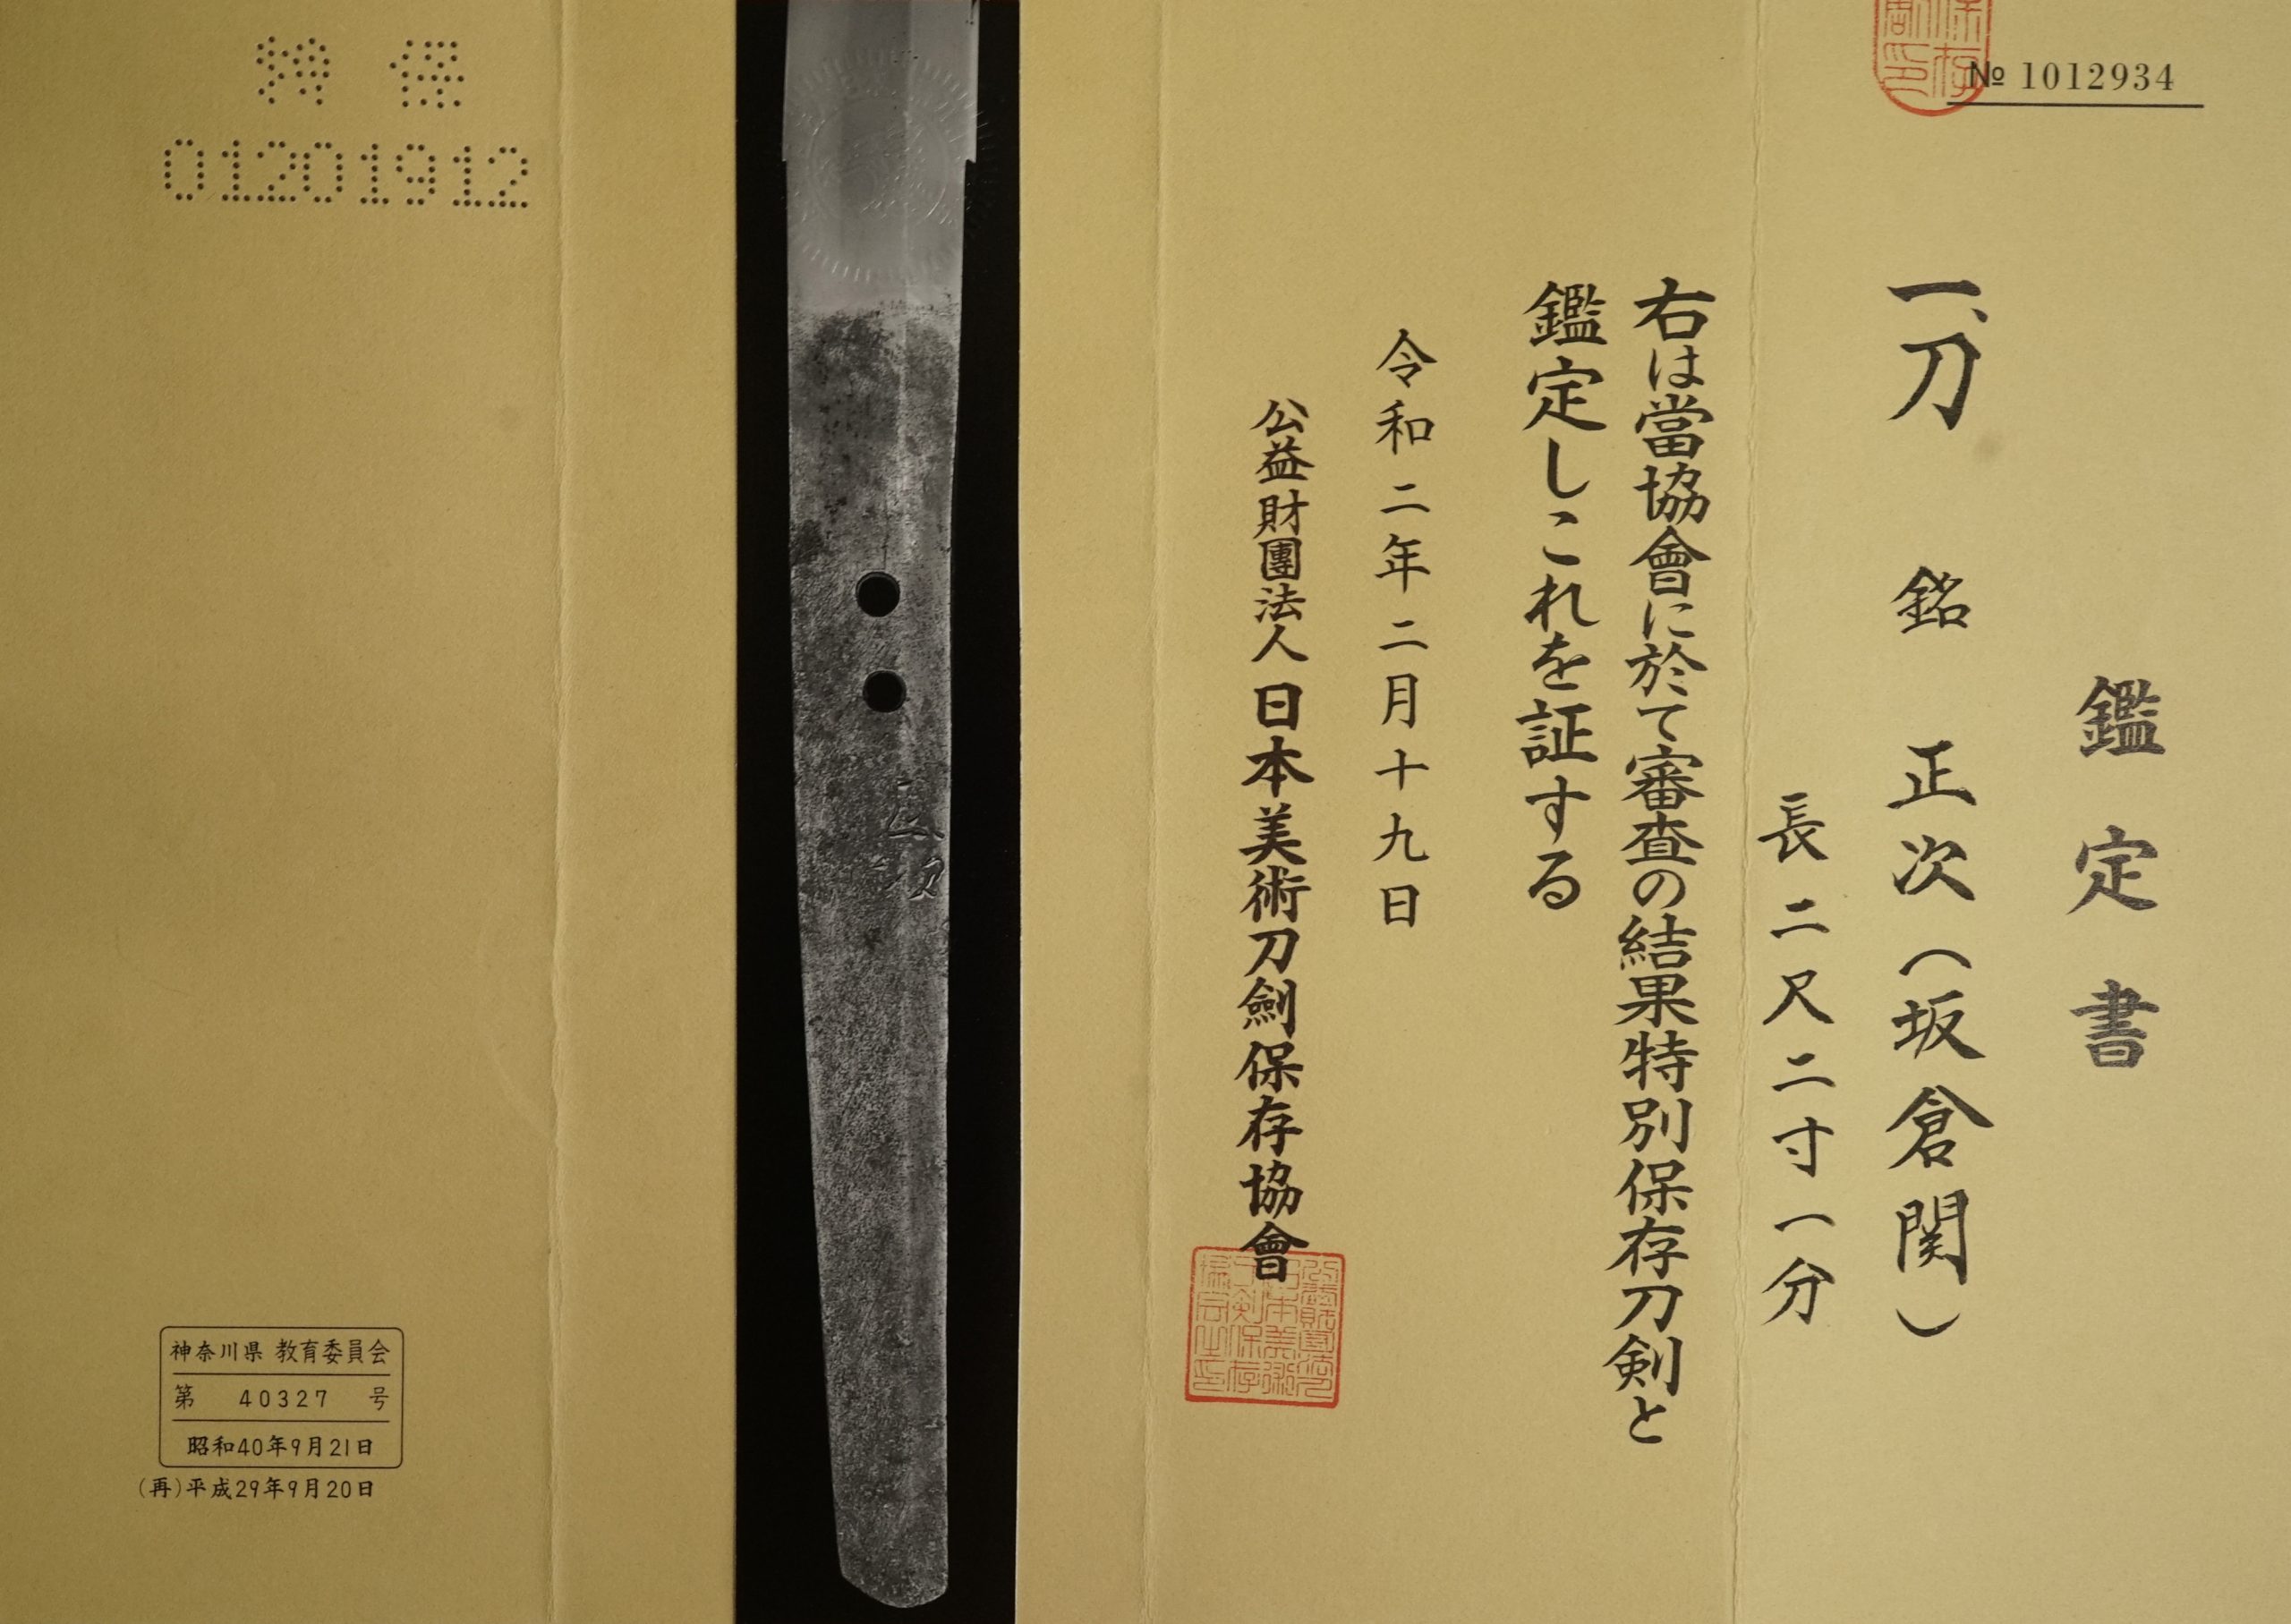 № 1012934
鑑定書
一、刀 銘 正次（坂倉関）
長二尺二寸一分
右は當協會に於て審査の結果特別保存刀剣と
鑑定しこれを証する
令和二年二月十九日
公益財團法人日本美術刀劍保存協會
正次
特保
01201912
神奈川県 教育委員会
第 40327 号
昭和40年9月21日
(再)平成29年9月20日